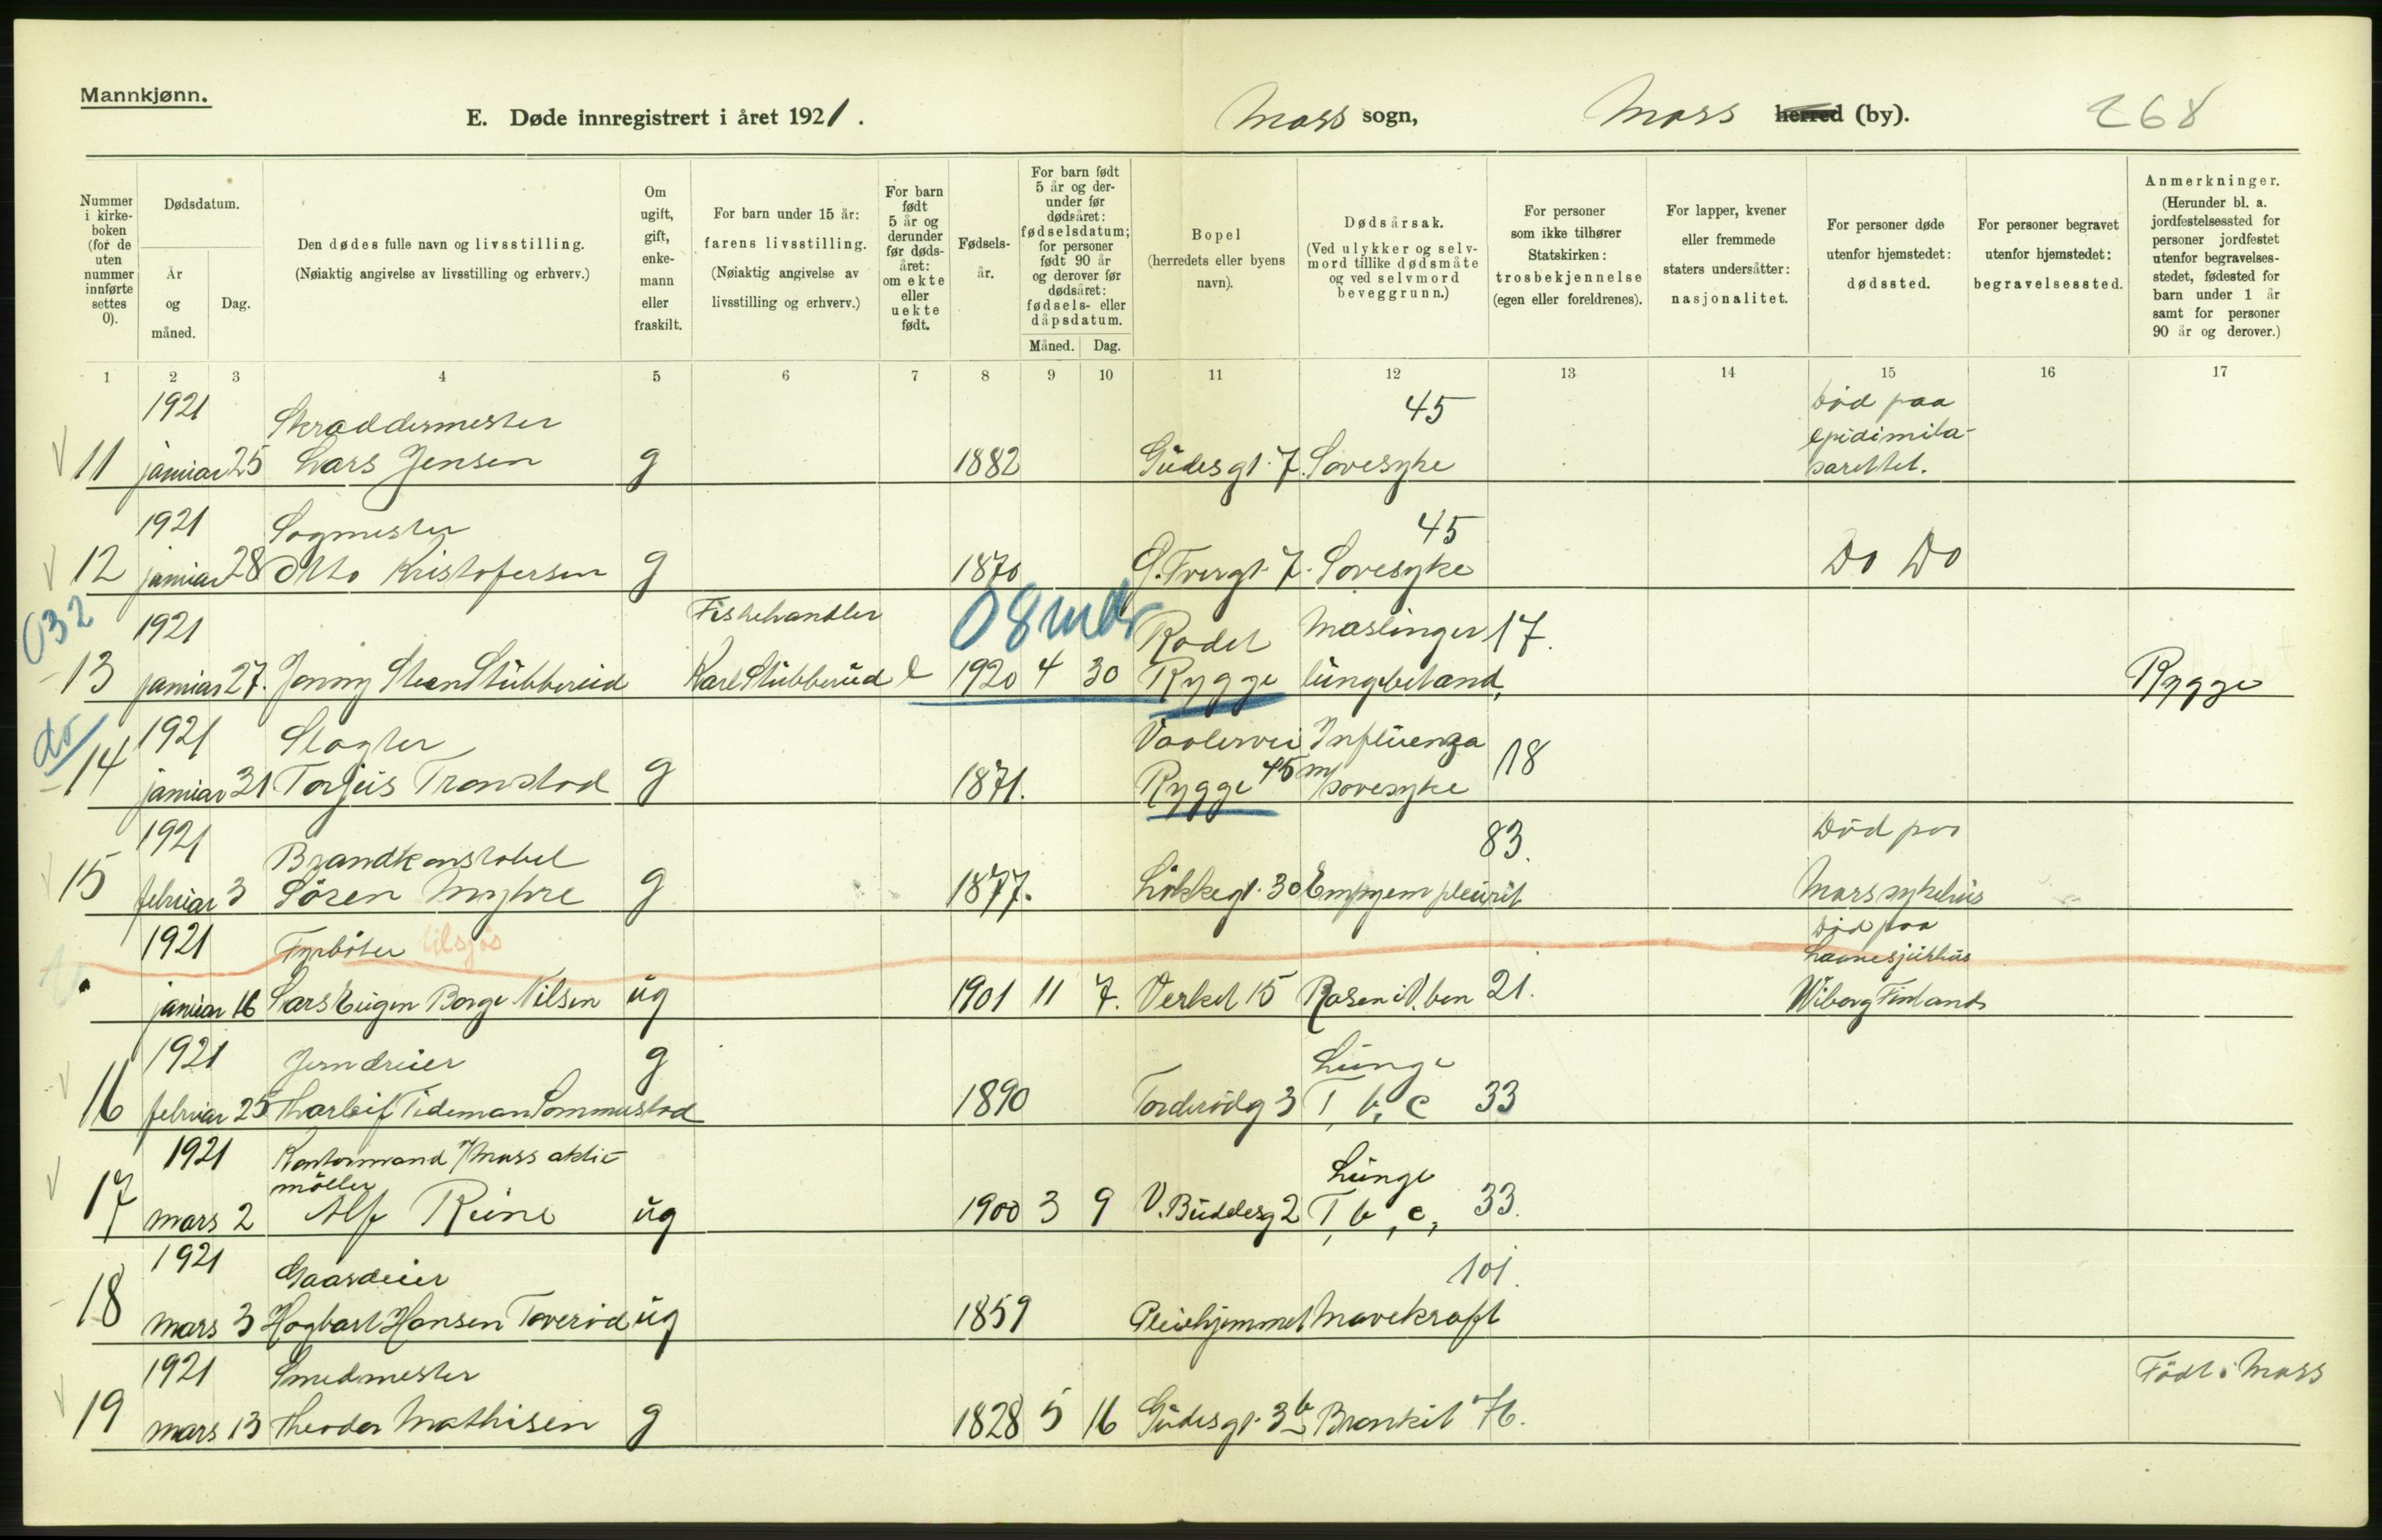 Mannkjønn.
E. Døde innregistrert i året 1921.
Moss sogn, Moss herred (by). 268
Nummer i kirkeboken (for de uten nummer innførte settes 0).
Dødsdatum.
År og måned.
Dag.
Den dødes fulle navn og livsstilling.
(Nøiaktig angivelse av livsstilling og erhverv.)
Om ugift, gift, enkemann eller fraskilt.
For barn under 15 år: farens livsstilling.
(Nøiaktig angivelse av livsstilling og erhverv.)
For barn født 5 år og derunder før dødsåret: om ekte eller uekte født.
Fødselsår.
For barn født 5 år og derunder før dødsåret: fødselsdatum; for personer født 90 år og derover før dødsåret: fødsels- eller dåpsdatum.
Måned. Dag.
Bopel (herredets eller byens navn).
Dødsårsak.
(Ved ulykker og selvmord tillike dødsmåte og ved selvmord beveggrunn.)
For personer som ikke tilhører Statskirken: trosbekjennelse (egen eller foreldrenes).
For lapper, kvener eller fremmede staters undersåtter: nasjonalitet.
For personer døde utenfor hjemstedet: dødssted.
For personer begravet utenfor hjemstedet: begravelsessted.
Anmerkninger.
(Herunder bl. a. jordfestelsessted for personer jordfestet utenfor begravelsesstedet, fødested for barn under 1 år samt for personer 90 år og derover.)
1 2 3 4 5 6 7 8 9 10 11 12 13 14 15 16 17
1921 Skræddermester 45 Död paa epidimila-
11 januar 25 Lars Jensen g 1882 Gudesgt. 7. Sovesyke sarettet.
1921 Sagmester 45
12 januar 28 Otto Kristofersen g 1870 7. Sovesyke Do Do
032 1921 Fiskehandler 08 mdr Rodet Mæslinger 17.
13 januar 27. Jonny Steen Stubberud Karl Stubberud e 1920 4 30 Rygge lungebetænd. Rygge
do 1921 Slagter Vaalervei Influenza
14 januar 31 Torjus Tronstad g 1871. Rygge 45 m/sovesyke 18
1921 Brandkonstabel 83. Död paa
15 februar 3 Sören Myhre g 1877. Lökkegt. 30 Empyem pleurit Moss sykehus
1921 Fyrböter tilsjøs Död paa Laanesjukhus
januar 16 Lars Eugen Borge Nilsen ug 1901 11 7. Verket 15 Rosen i V. ben 21. Wiborg Finland
1921 Jerndreier g Lunge
16 februar 25 Tharleif Tideman Sommerstad 1890 Torderödg 3 T, b, c 33
1921 Kontormand v/Moss aktie- Lunge
möller
17 mars 2 Alf Rune ug 1900 3 9 V. Buddesg 2 T, b, c, 33.
1921 Gaardeier 101.
18 mars 3 Hagbart Hansen Taveröd ug 1859 Pleiehjemmet Mavekræft
1921 Smedmester Födt i Moss
19 mars 13 Theodor Mathisen g 1828 5 16 Gudesgt. 3b Bronkit 76.